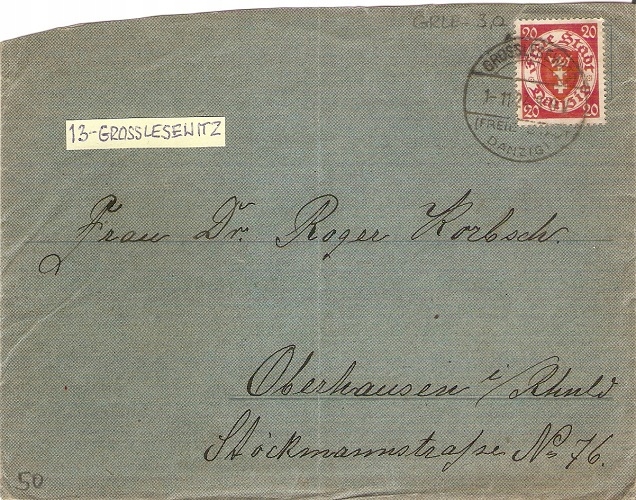 GRLE-3,a
20 20
Freie Stadt
Danzig
20 20
GROSSLESEWITZ
1-11
(FREIE
DANZIG)
13-GROSSLESEWITZ
Frau Dr. Roger Korbsch.
Oberhausen i/Rhnld
Stöckmannstraße No 76.
50